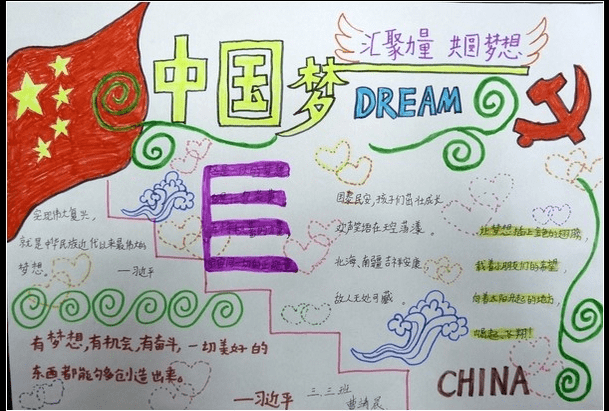 汇聚力量 共圆梦想
中国梦
DREAM
实现伟大复兴,
就是中华民族近代以来最伟大的
梦想。
—习近平
国泰民安,孩子们茁壮成长
欢声笑语在天空荡漾。
北海、南疆吉祥安康
敌人无处可藏。
让梦想插上金色的翅膀,
载着小朋友们的希望,
向着太阳升起的地方,
有梦想,有机会,有奋斗,一切美好的
东西都能够创造出来。
—习近平
三.三班
CHINA